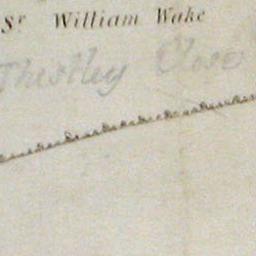 Sr William Wake
Thistley Close